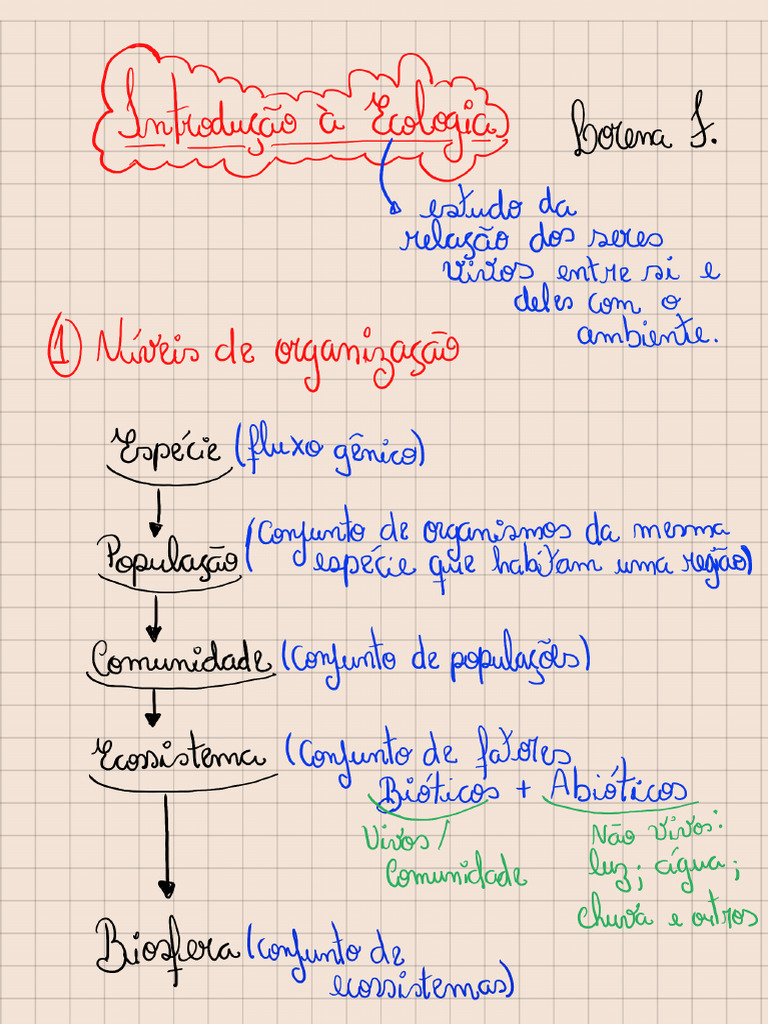 Introdução à Ecologia
Lorena F.
estudo da
relação dos seres
vivos entre si e
deles com o
ambiente.
1) Níveis de organização
Espécie (fluxo gênico)
População (Conjunto de organismos da mesma
espécie que habitam uma região)
Comunidade (conjunto de populações)
Ecossistema (Conjunto de fatores
Bióticos + Abióticos
Vivos/
Comunidade
Não vivos:
luz; água;
chuva e outros
Biosfera (conjunto de
ecossistemas)